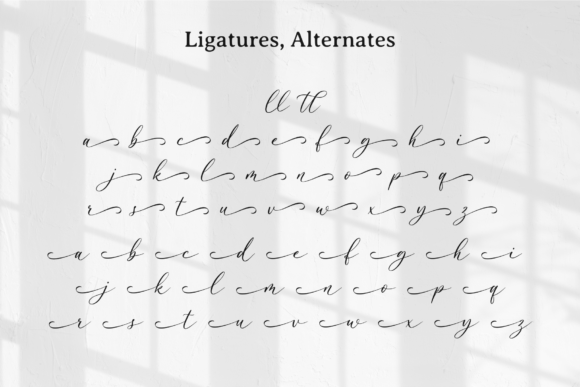 Ligatures, Alternates
ll tl
a b c d e f g h i
j k l m n o p q
r s t u v w x y z
a b c d e f g h i
j k l m n o p q
r s t u v w x y z